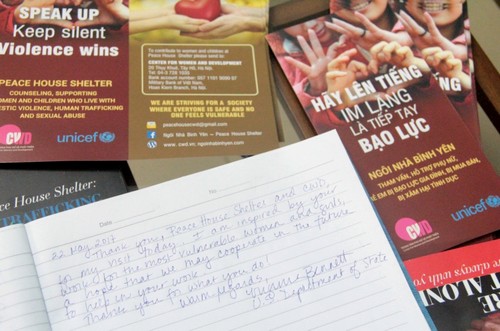 SPEAK UP
Keep silent
Violence wins
PEACE HOUSE SHELTER
COUNSELING, SUPPORTING
WOMEN AND CHILDREN WHO LIVE WITH
DOMESTIC VIOLENCE, HUMAN TRAFFICKING
AND SEXUAL ABUSE
CWD
unicef
To contribute to women and children at
Peace House Shelter please send to:
CENTER FOR WOMEN AND DEVELOPMENT
Bank account number:
Military Bank of Viet Nam,
WE ARE STRIVING FOR A SOCIETY
WHERE EVERYONE IS SAFE AND NO
ONE FEELS VULNERABLE
peacehousecwd@gmail.com
Ngôi Nhà Bình Yên – Peace House Shelter
www.cwd.vn; ngoinhabinhyen.com
HÃY LÊN TIẾNG
IM LẶNG
LÀ TIẾP TAY
BẠO LỰC
NGÔI NHÀ BÌNH YÊN
THAM VẤN, HỖ TRỢ PHỤ NỮ,
TRẺ EM BỊ BẠO LỰC GIA ĐÌNH, BỊ MUA BÁN,
BỊ XÂM HẠI TÌNH DỤC
CWD
unicef
Peace House Shelter:
TRAFFICKING
No
Date
22 May 2017
Thank you, Peace House Shelter and CWD,
for my visit today. I am inspired by your
work for the most vulnerable women and girls,
& hope that we may cooperate in the future
to help in your work.
Thanks you for what you do!
Warm regards,
Yvonne Bennett
US Department of State
are always with you
ALON